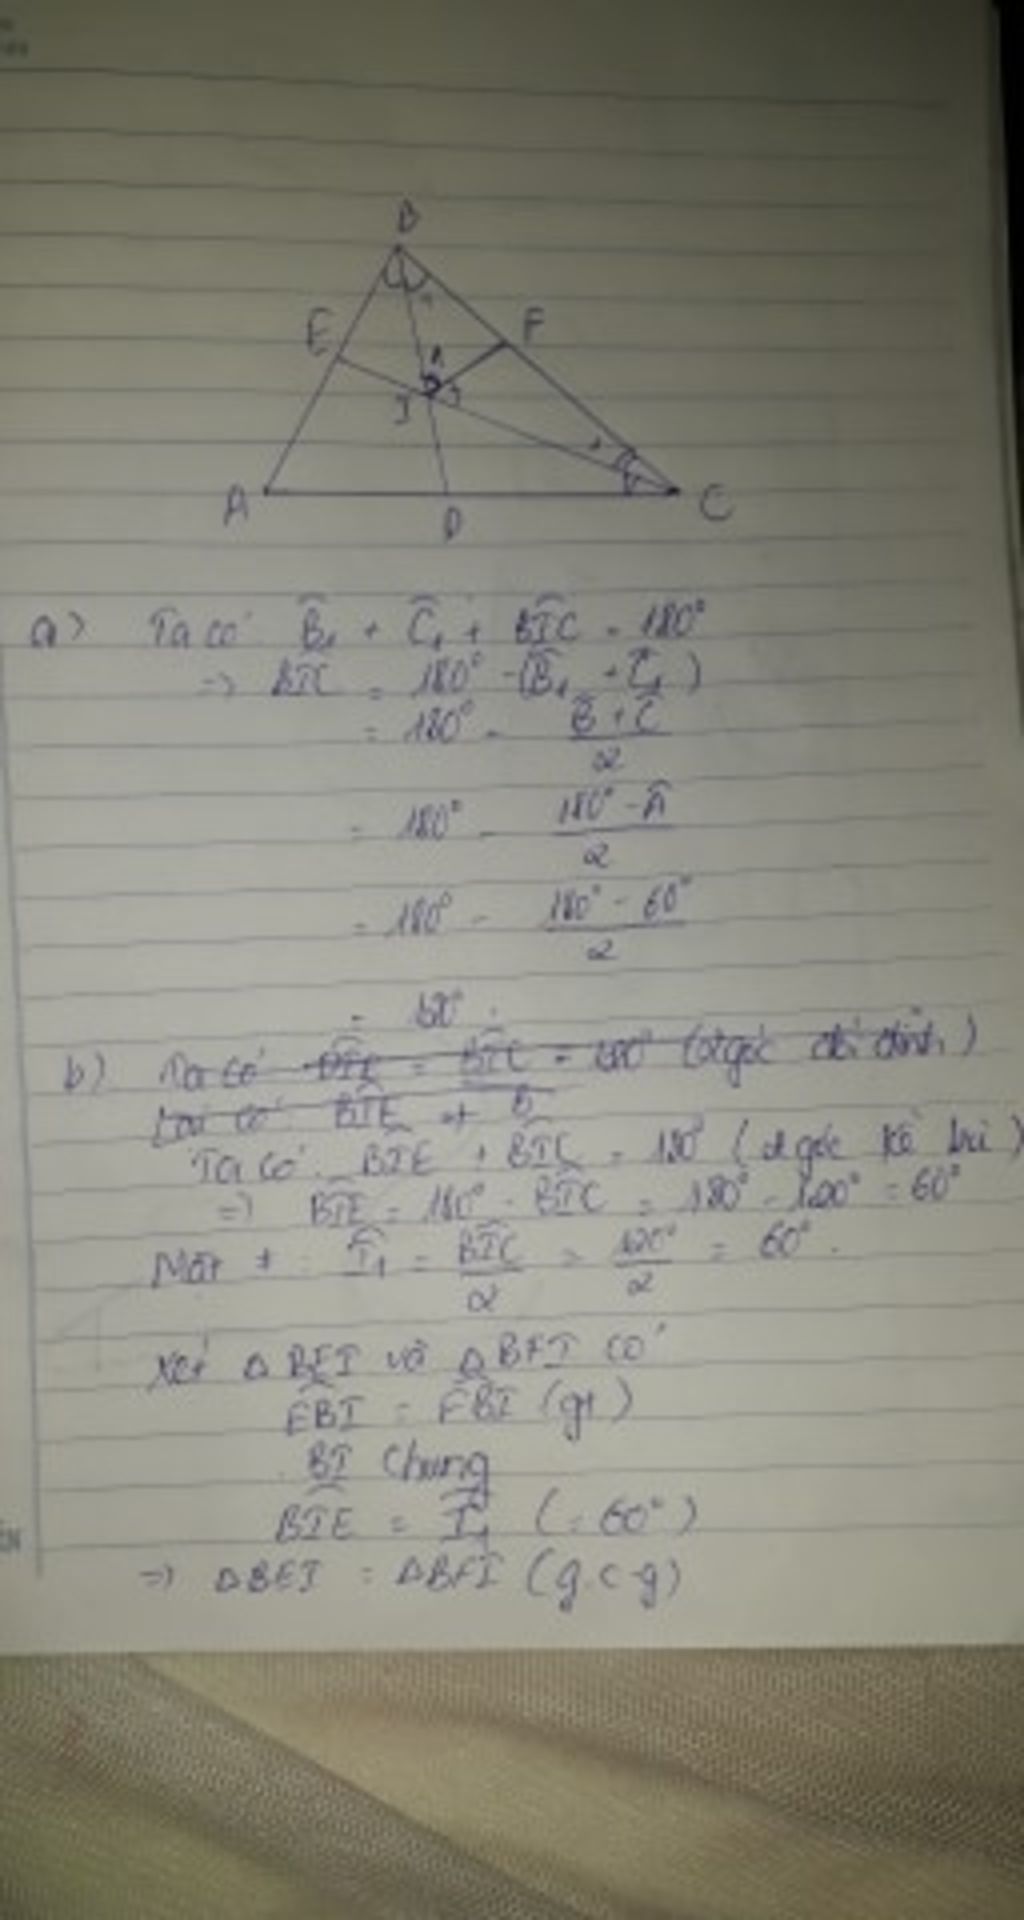 B
E
F
I
A
D
C
a) Ta có B̂₁ + Ĉ₁ + BÎC = 180°
=> BÎC = 180° - (B̂₁ + Ĉ₁)
= 180° - (B̂ + Ĉ)/2
= 180° - (180° - Â)/2
= 180° - (180° - 60°)/2
= 120°.
b) Ta có = BÎC = 120° (2 góc đối đỉnh)
Lại có BÎE +
Ta có. BÎE + BÎC = 180° (2 góc kề bù)
=> BÎE = 180° - BÎC = 180° - 120° = 60°
Mặt ≠ : Î₁ = BÎC/2 = 120°/2 = 60°.
Xét Δ BEI và Δ BFI có
EB̂I = FB̂I (gt)
BI chung
BÎE = Î₁ (= 60°)
=> ΔBEI = ΔBFI (g.c-g)